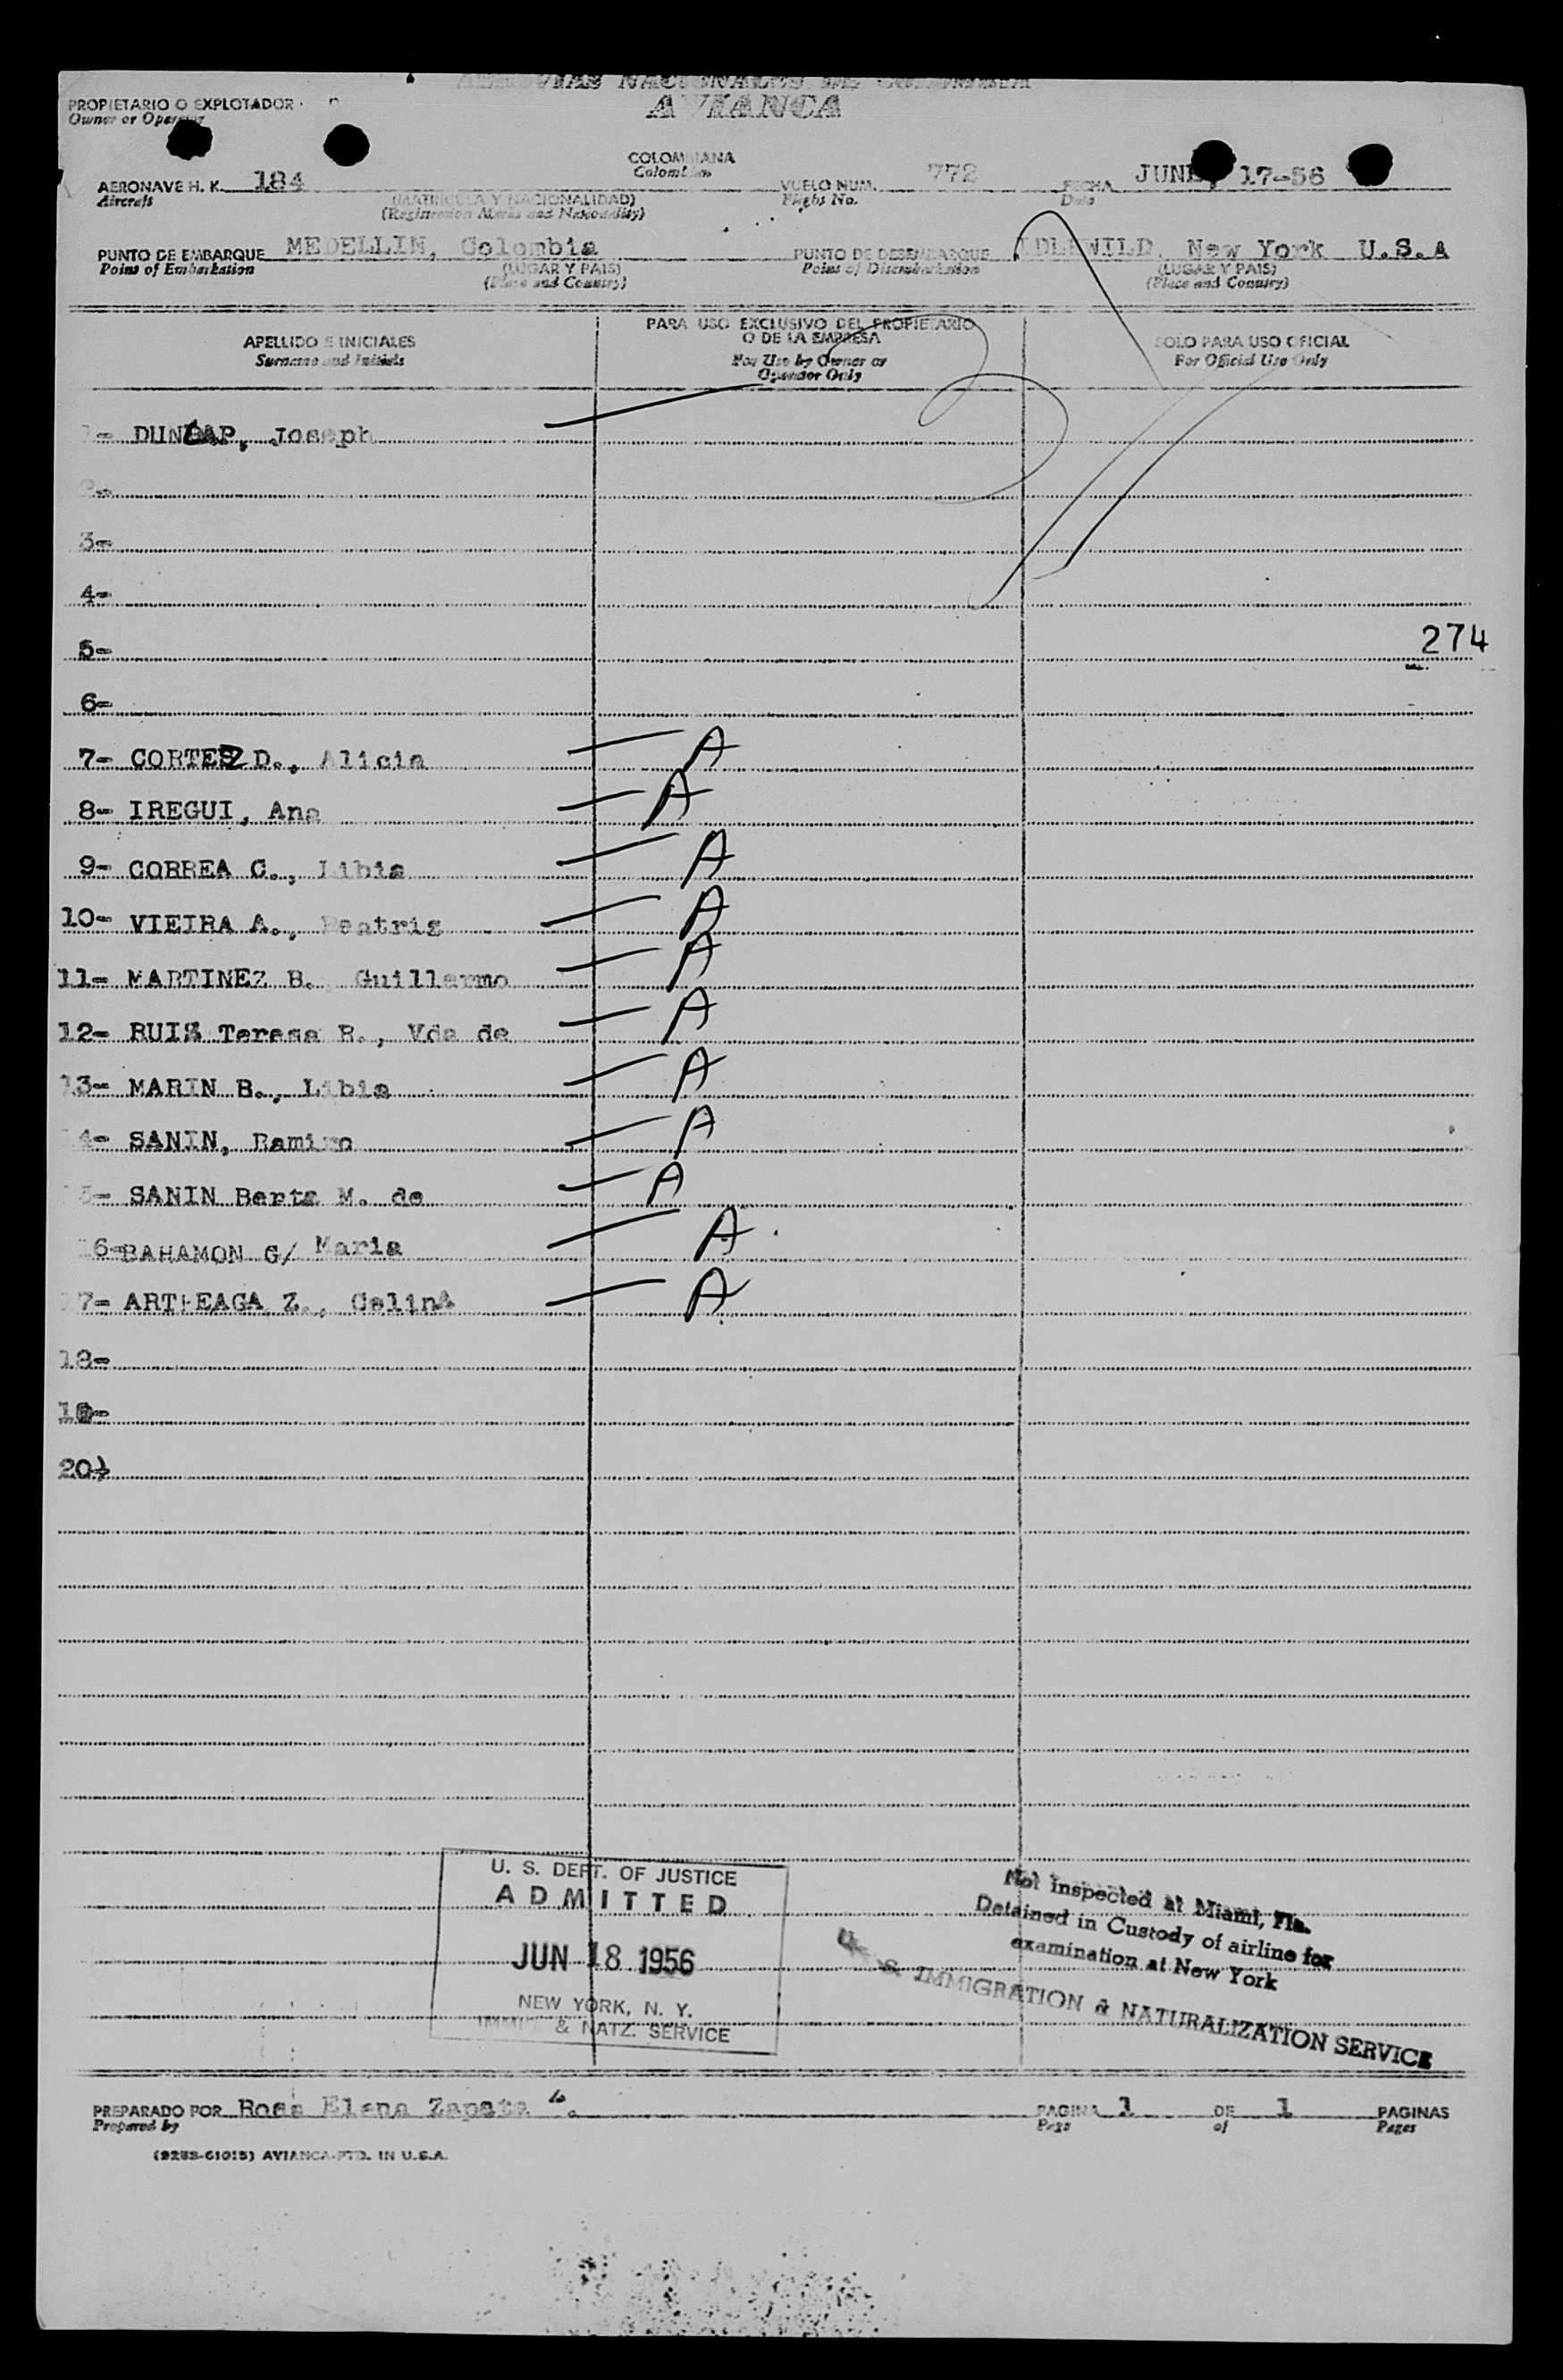 AEROVIAS NACIONALES DE COLOMBIA
AVIANCA
PROPIETARIO O EXPLOTADOR
Owner or Operator
COLOMBIANA
Colombian
AERONAVE H. K. 184
Aircraft
(MATRICULA Y NACIONALIDAD)
(Registration Marks and Nationality)
VUELO NUM. 772
Flight No.
FECHA JUNE, 17-56
Date
PUNTO DE EMBARQUE MEDELLIN, Colombia
Point of Embarkation
(LUGAR Y PAIS)
(Place and Country)
PUNTO DE DESEMBARQUE IDLEWILD, New York U.S.A
Point of Disembarkation
(LUGAR Y PAIS)
(Place and Country)
APELLIDO E INICIALES
Surname and Initials
PARA USO EXCLUSIVO DEL PROPIETARIO
O DE LA EMPRESA
For Use by Owner or
Operator Only
SOLO PARA USO OFICIAL
For Official Use Only
1- DUNLAP, Joseph
2-
3-
4-
5-
274
6-
7- CORTEZ D., Alicia — A
8- IREGUI, Ana — A
9- CORREA C., Libia — A
10- VIEIRA A., Beatriz — A
11- MARTINEZ B., Guillermo — A
12- RUIZ Teresa R., Vda de — A
13- MARIN B., Libia — A
14- SANIN, Ramiro — A
15- SANIN Berta M. de — A
16- BAHAMON G/ Maria — A
17- ARTEAGA Z., Celina — A
18-
19-
20-
U. S. DEPT. OF JUSTICE
ADMITTED
JUN 18 1956
NEW YORK, N. Y.
IMMIG. & NATZ. SERVICE
Not inspected at Miami, Fla.
Detained in Custody of airline for
examination at New York
U. S. IMMIGRATION & NATURALIZATION SERVICE
PREPARADO POR Rosa Elena Zapata
Prepared by
PAGINA 1 DE 1 PAGINAS
Page of Pages
(9283-61015) AVIANCA-PTD. IN U.S.A.